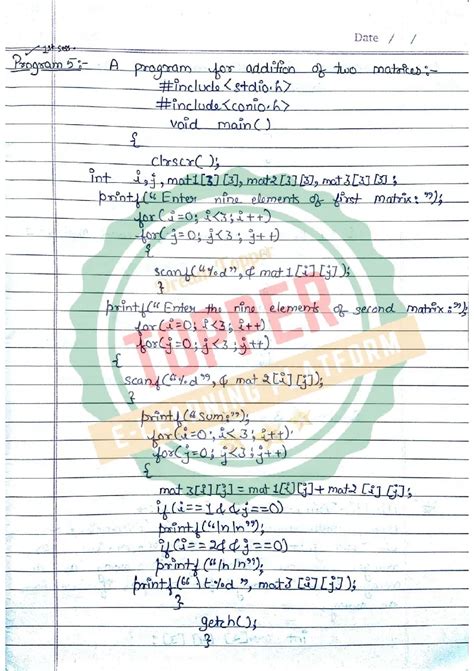 Date / /
1st sem.
Program 5:- A program for addition of two matrices:-
#include<stdio.h>
#include<conio.h>
void main()
{
clrscr();
int i,j,mat1[3][3],mat2[3][3],mat3[3][3];
printf("Enter nine elements of first matrix:");
for(i=0; i<3; i++)
for(j=0; j<3; j++)
{
scanf("%d", & mat1[i][j]);
}
printf("Enter the nine elements of second matrix:");
for(i=0; i<3; i++)
for(j=0; j<3; j++)
{
scanf("%d", & mat2[i][j]);
}
printf("Sum:");
for(i=0; i<3; i++)
for(j=0; j<3; j++)
{
mat3[i][j]=mat1[i][j]+mat2[i][j];
if(i==1&&j==0)
printf("\n\n");
if(i==2&&j==0)
printf("\n\n");
printf("\t%d", mat3[i][j]);
}
getch();
}
TOPPER
E-LEARNING PLATFORM